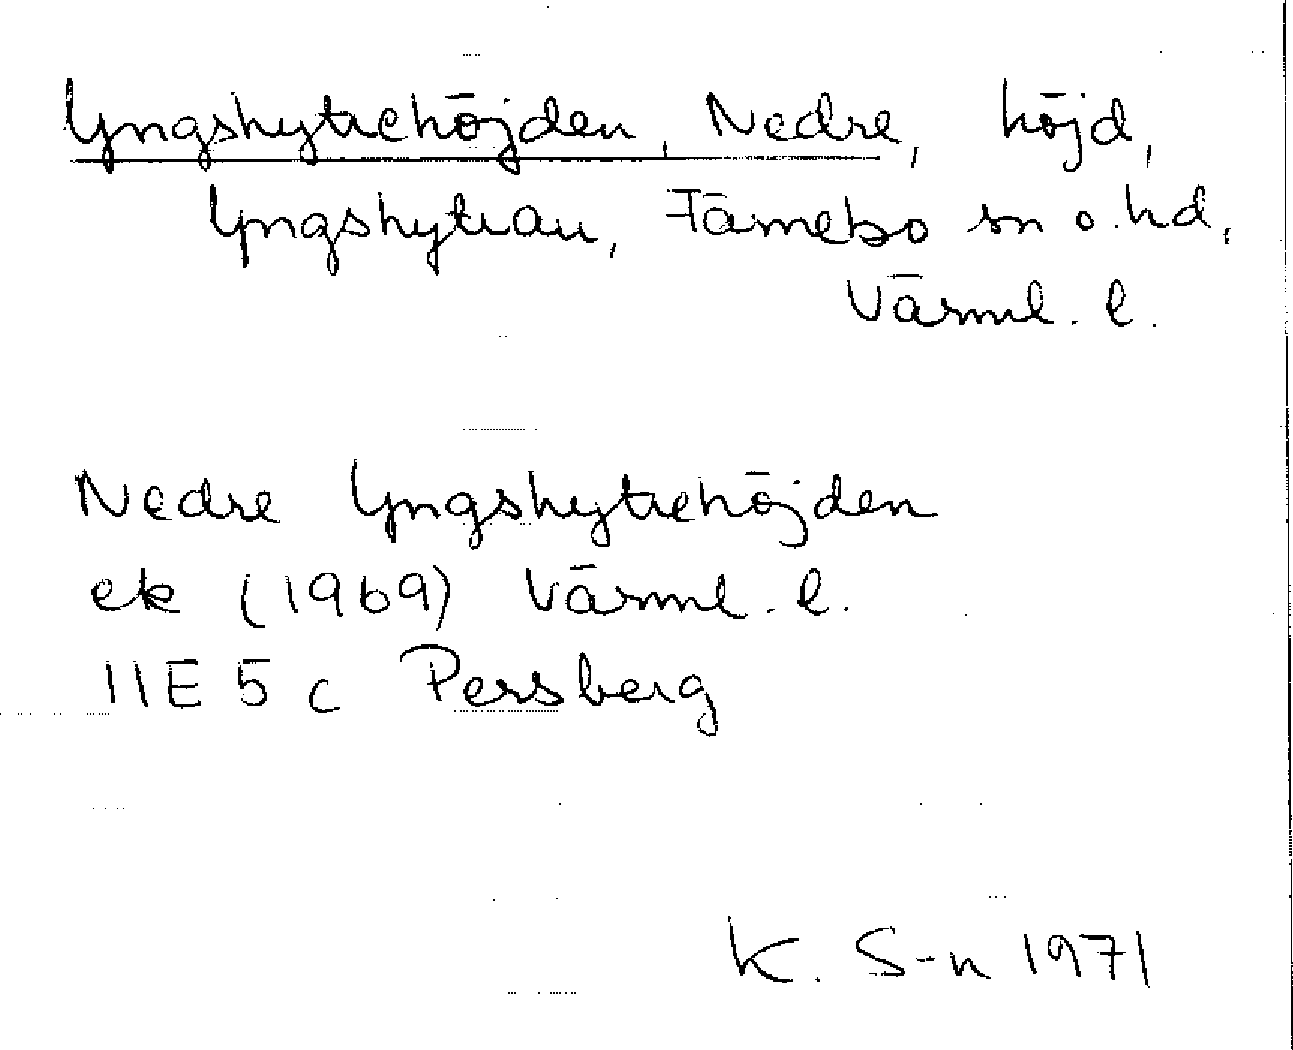 Yngshyttehöjden, Nedre, höjd,
Yngshyttan, Färnebo sn o. hd,
Värml. l.
Nedre Yngshyttehöjden
ek (1969) Värml. l.
11E 5 c Persberg
K. S-n 1971